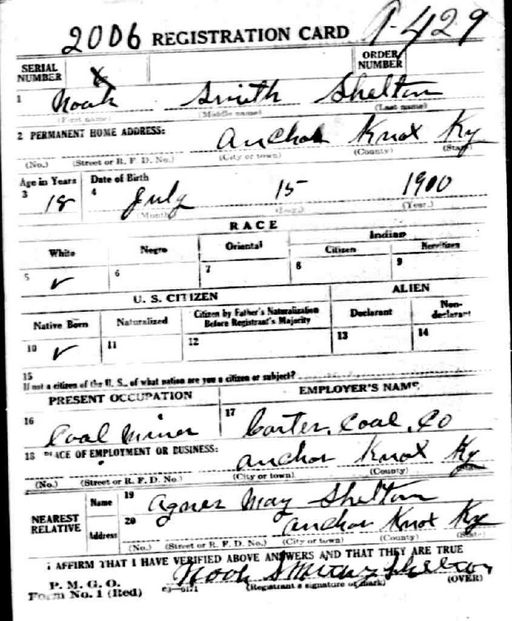 2006 REGISTRATION CARD A-429
SERIAL NUMBER ORDER NUMBER
1 Noah Smith Shelton
(First name) (Middle name) (Last name)
2 PERMANENT HOME ADDRESS: Anchor Knox Ky
(No.) (Street or R. F. D. No.) (City or town) (County) (State)
Age in Years Date of Birth
3 18 4 July 15 1900
(Month.) (Day.) (Year.)
RACE
White Negro Oriental Indian
Citizen Noncitizen
5 ✓ 6 7 8 9
U. S. CITIZEN ALIEN
Native Born Naturalized Citizen by Father's Naturalization Before Registrant's Majority Declarant Non-declarant
10 ✓ 11 12 13 14
15
If not a citizen of the U. S., of what nation are you a citizen or subject?
PRESENT OCCUPATION EMPLOYER'S NAME
16 Coal Miner 17 Carter Coal Co
18 PLACE OF EMPLOYMENT OR BUSINESS: Anchor Knox Ky
(No.) (Street or R. F. D. No.) (City or town) (County) (State)
NEAREST RELATIVE Name 19 Agnes May Shelton
Address 20 Anchor Knox Ky
(No.) (Street or R. F. D. No.) (City or town) (County) (State)
I AFFIRM THAT I HAVE VERIFIED ABOVE ANSWERS AND THAT THEY ARE TRUE
P. M. G. O.
Form No. 1 (Red) 03—6171 Noah Smith Shelton
(Registrant's signature or mark) (OVER)